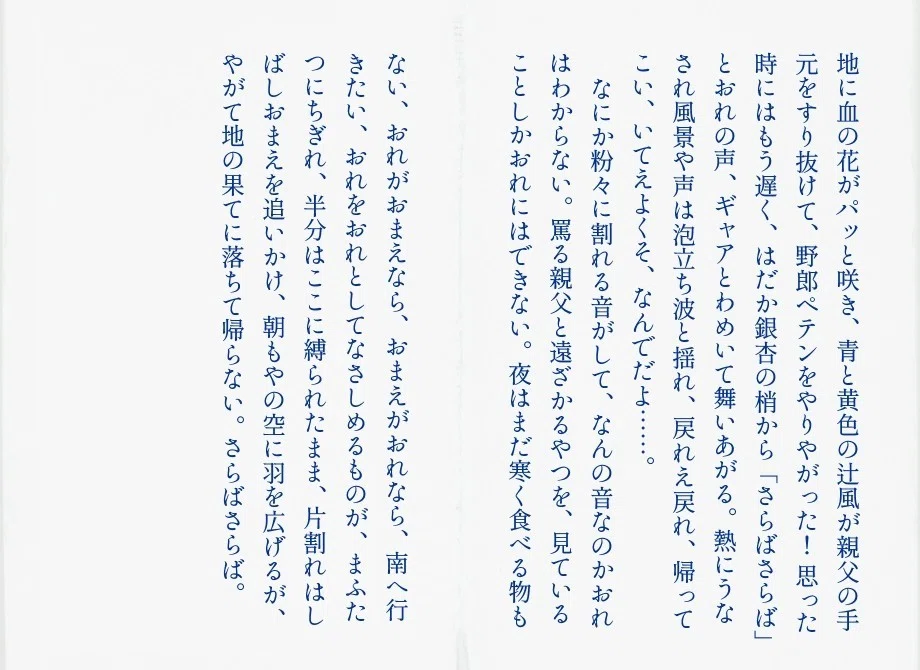 地に血の花がパッと咲き、青と黄色の辻風が親父の手
元をすり抜けて、野郎ペテンをやりやがった！ 思った
時にはもう遅く、はだか銀杏の梢から「さらばさらば」
とおれの声、ギャアとわめいて舞いあがる。熱にうな
され風景や声は泡立ち波と揺れ、戻れえ戻れ、帰って
こい、いてえよくそ、なんでだよ……。
　なにか粉々に割れる音がして、なんの音なのかおれ
はわからない。罵る親父と遠ざかるやつを、見ている
ことしかおれにはできない。夜はまだ寒く食べる物も
ない、おれがおまえなら、おまえがおれなら、南へ行
きたい、おれをおれとしてなさしめるものが、まふた
つにちぎれ、半分はここに縛られたまま、片割れはし
ばしおまえを追いかけ、朝もやの空に羽を広げるが、
やがて地の果てに落ちて帰らない。さらばさらば。